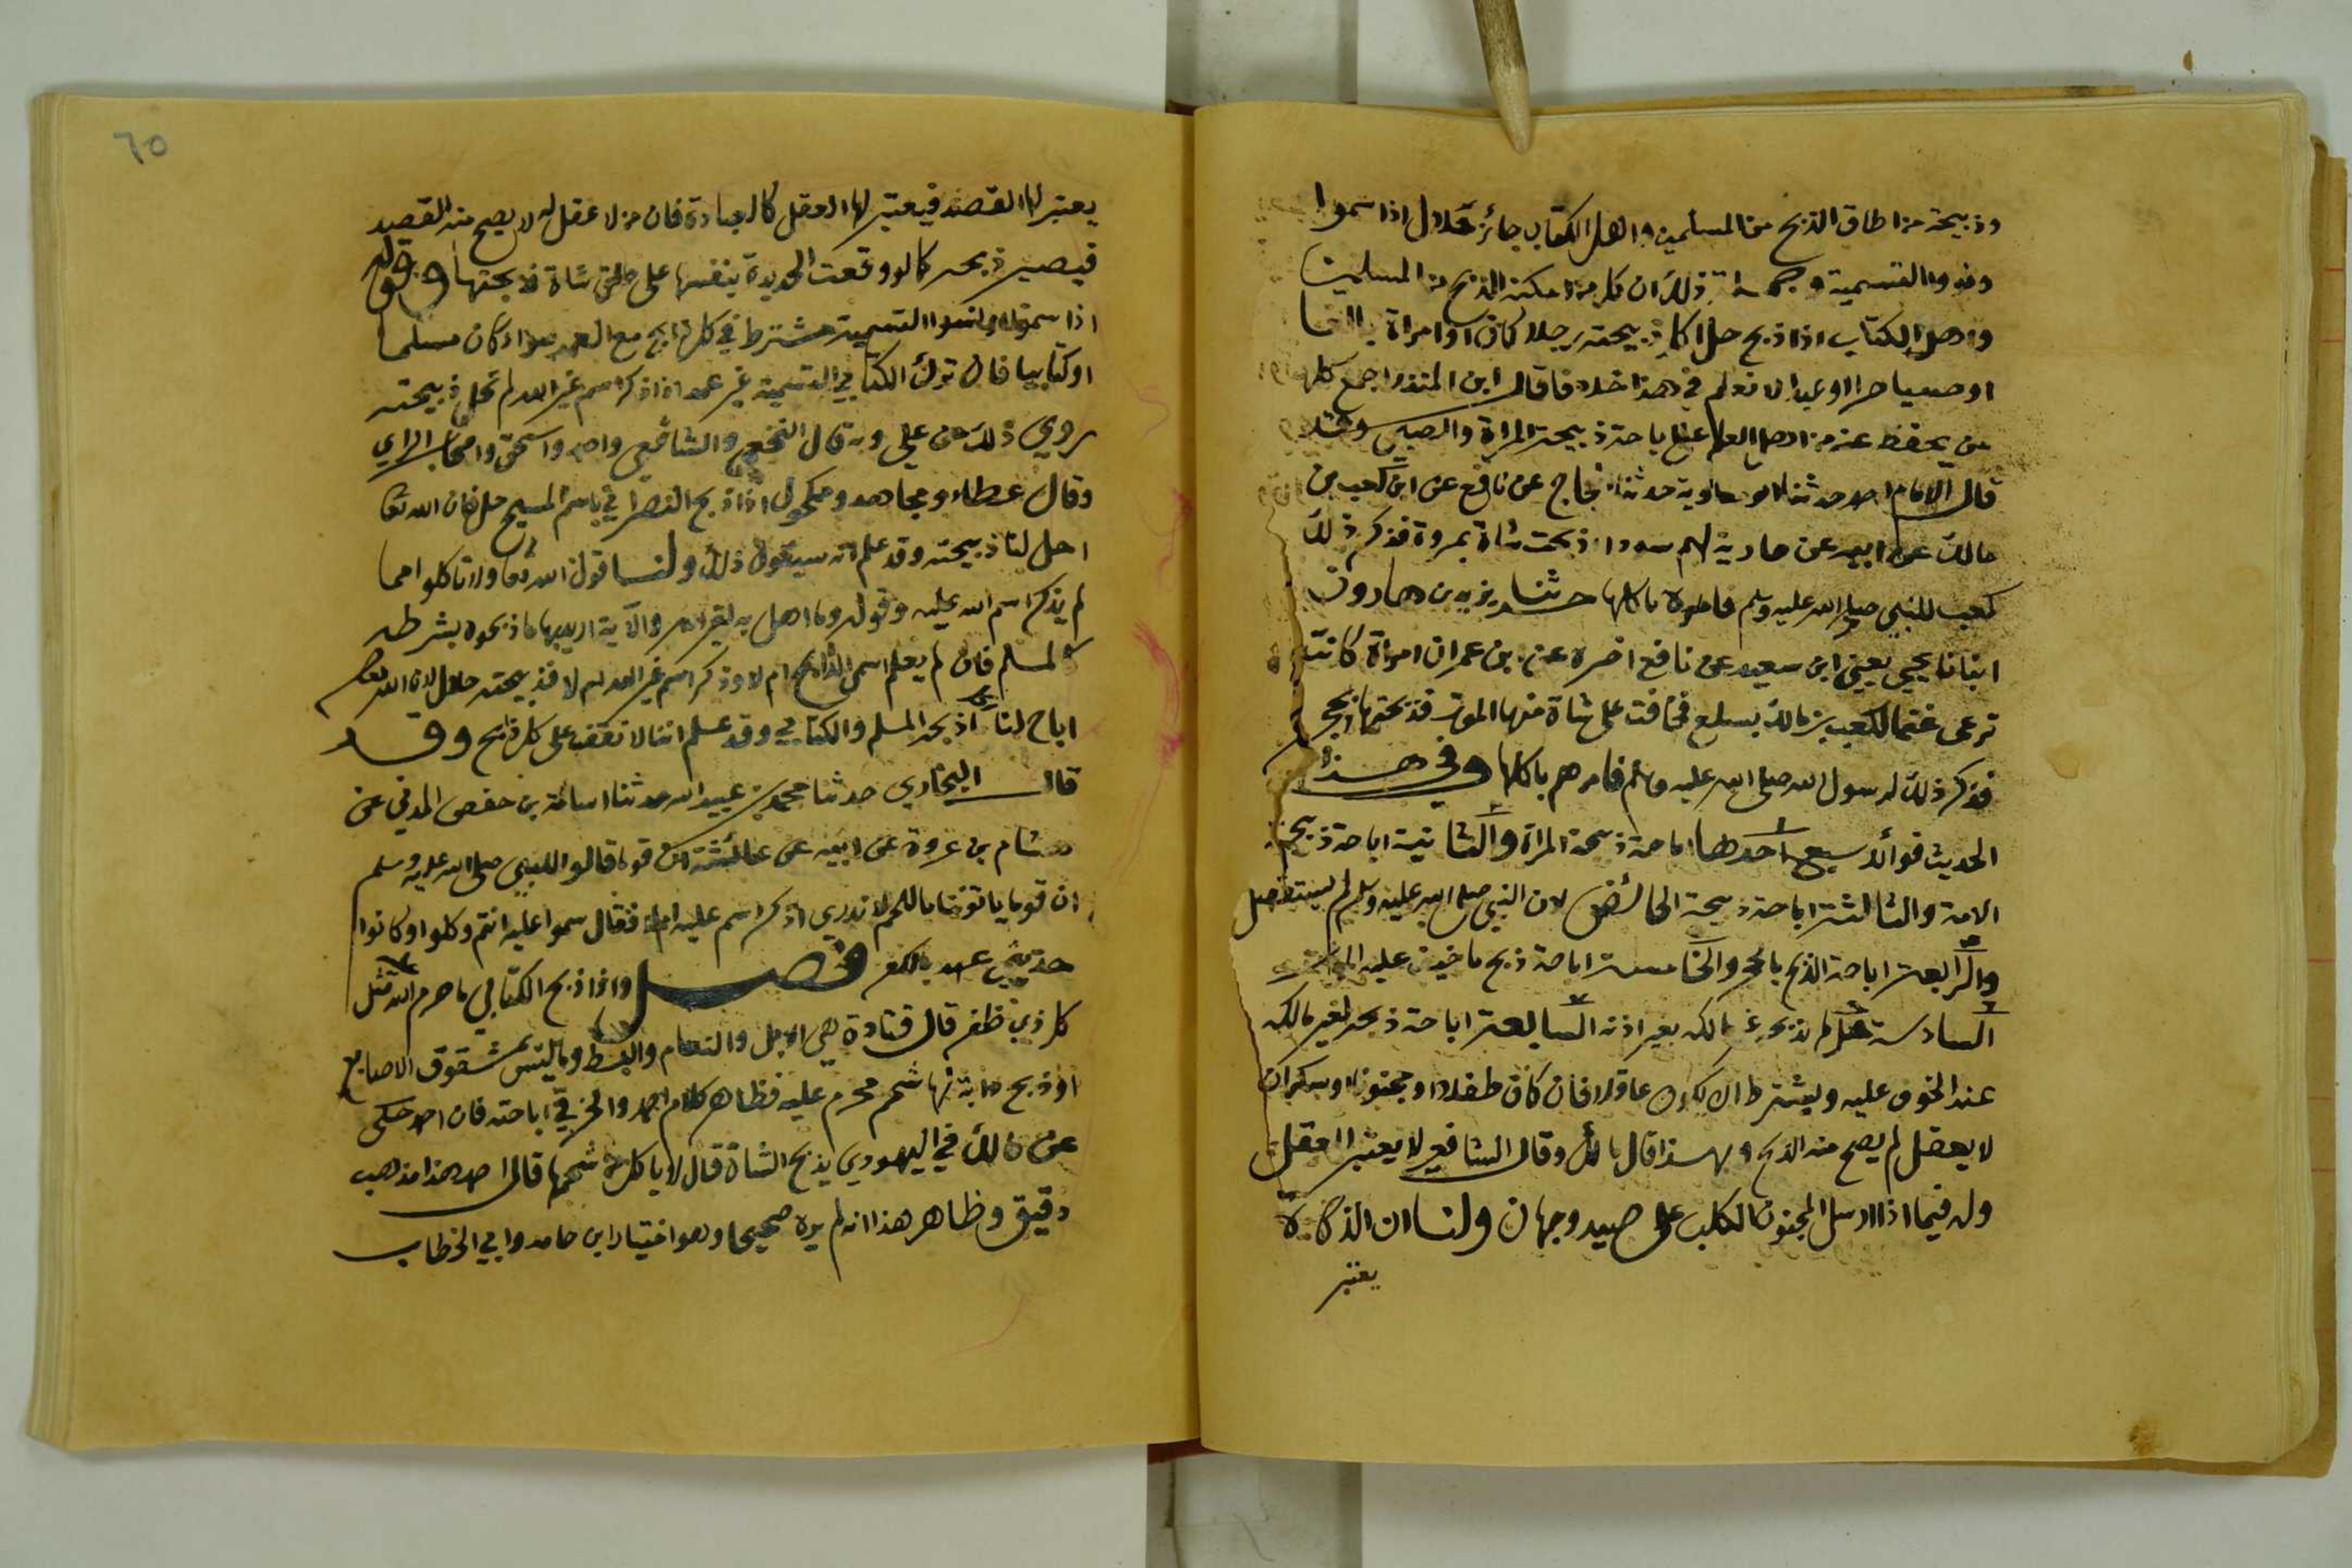 وذبيحة من اطاق الذبح من المسلمين واهل الكتاب جائز حلال اذا سموا
ونسوا التسمية وجملة ذلك ان كل من امكنه الذبح من المسلمين
واهل الكتاب اذا ذبح حل اكل ذبيحته رجلا كان او امراة بالغا
او صبيا حرا او عبدا لا نعلم في هذا خلافا قال ابن المنذر اجمع كل
من يحفظ عنه من اهل العلم على اباحة ذبيحة المراة والصبي
قال الامام احمد حدثنا ابو معاوية حدثنا حجاج عن نافع عن ابن كعب بن
مالك عن ابيه عن جارية لهم سودا ذبحت شاة بمروة فذكر ذلك
كعب للنبي صلى الله عليه وسلم فامره باكلها حدثنا يزيد بن هارون
انبانا يحيى يعني ابن سعيد عن نافع اخبره عن بن عمر ان امراة كانت
ترعى غنما لكعب بن مالك بسلع فخافت على شاة منها الموت فذبحتها بحجر
فذكر ذلك لرسول الله صلى الله عليه وسلم فامرهم باكلها وفي هذا
الحديث فوائد سبع احدها اباحة ذبيحة المراة والثانية اباحة ذبيحة
الامة والثالثة اباحة ذبيحة الحائض لان النبي صلى الله عليه وسلم لم يستفصل
والرابعة اباحة الذبح بالحجر والخامسة اباحة ذبح ما خيف عليه الموت
السادسة حل ما يذبحه غير مالكه بغير اذنه السابعة اباحة ذبحه لغير مالكه
عند الخوف عليه ويشترط ان يكون عاقلا فان كان طفلا او مجنونا او سكران
لا يعقل لم يصح منه الذبح وبهذا قال مالك وقال الشافعي لا يعتبر العقل
وله فيما اذا ارسل المجنون الكلب على صيد وجهان ولنا ان الذكاة
يعتبر
٦٥
يعتبر لها القصد فيعتبر لها العقل كالعبادة فان من لا عقل له لا يصح منه القصد
فيصير ذبحه كما لو وقعت الحديدة بنفسها على حلق شاة فذبحتها وقوله
اذا سموا او نسوا التسمية مشترط في كل ذابح مع العمد سواء كان مسلما
او كتابيا فان ترك الكتابي التسمية عن عمد او ذكر اسم غير الله لم تحل ذبيحته
روي ذلك عن علي وبه قال النخعي والشافعي واحمد واسحق واصحاب الراي
وقال عطاء ومجاهد ومكحول اذا ذبح النصراني باسم المسيح حل فان الله تعالى
احل لنا ذبيحته وقد علم انه سيقول ذلك ولنا قول الله تعالى ولا تاكلوا مما
لم يذكر اسم الله عليه وقوله وما اهل به لغير الله والآية اريد بها ما ذبحوه بشرطه
كالمسلم فان لم يعلم اسمى الذابح ام لا وذكر اسم غير الله ام لا فذبيحته حلال لان الله تعالى
اباح لنا اكل ذبحة المسلم والكتابي وقد علم اننا لا نقف على كل ذابح وقد
قال البخاري حدثنا محمد بن عبيد الله حدثنا اسامة بن حفص المدني عن
هشام بن عروة عن ابيه عن عائشة ان قوما قالوا للنبي صلى الله عليه وسلم
ان قوما ياتوننا باللحم لا ندري اذكر اسم عليه ام لا فقال سموا عليه انتم وكلوا وكانوا
حديثي عهد بالكفر فصل واذا ذبح الكتابي ما حرم الله مثل
كل ذي ظفر قال قتادة هي الابل والنعام والبط وما ليس بمشقوق الاصابع
او ذبح دابة لها شحم محرم عليه فظاهر كلام احمد والخرقي اباحته فان احمد حكى
عن مالك في اليهودي يذبح الشاة قال لا ياكل من شحمها قال احمد هذا مذهب
دقيق وظاهر هذا انه لم يره صحيحا وهو اختيار ابن حامد وابي الخطاب